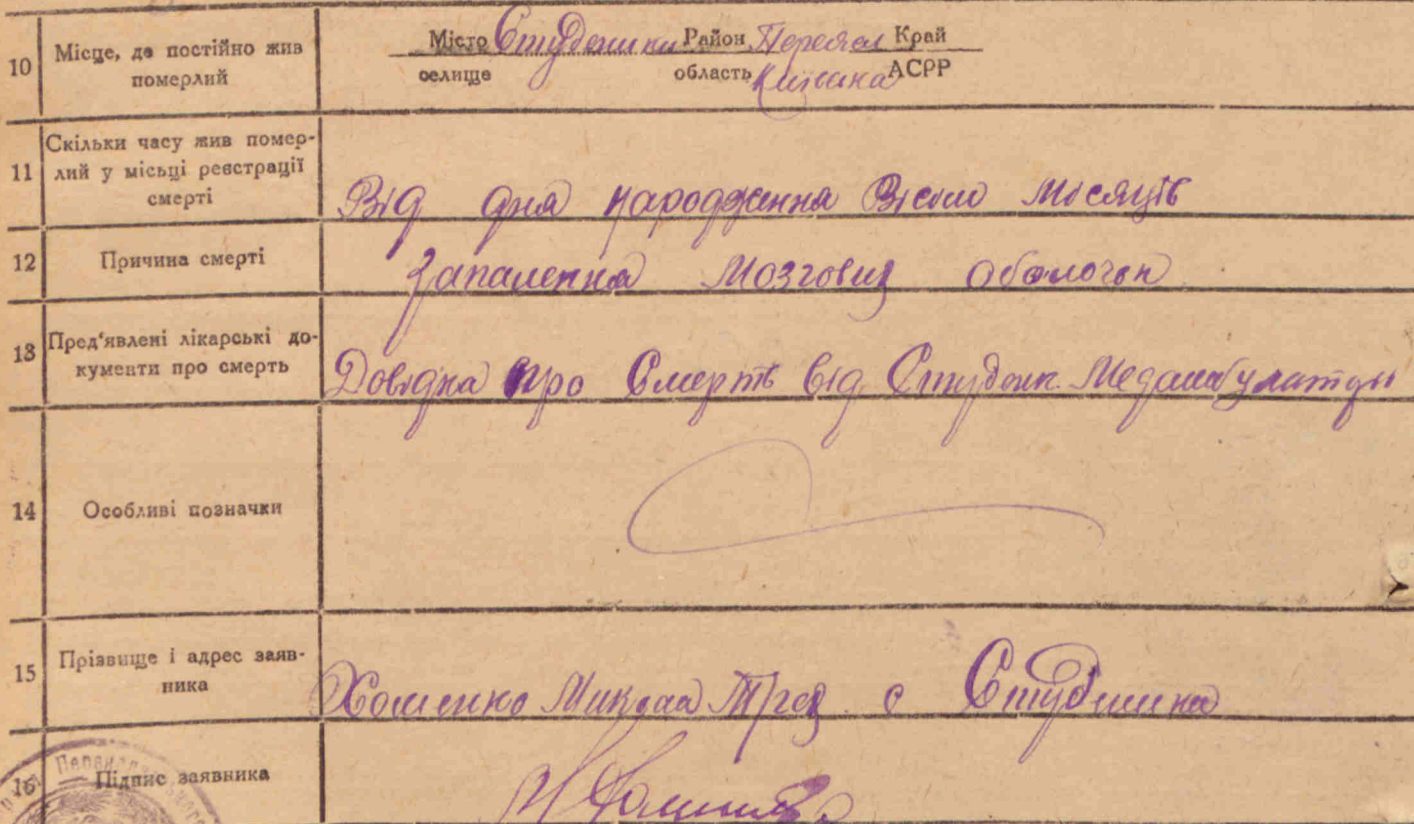 10 Місце, де постійно жив померлий
Місто Студеники Район Переясл Край
селище область Київська АСРР
11 Скільки часу жив помер-
лий у місьці реєстрації
смерті
Від дня народдення Вісім Місяців
12 Причина смерті
Запалення Мозгових оболочок
13 Пред'явлені лікарські до-
кументи про смерть
Довідка про Смерть від Студеник. Медамбулаторії
14 Особливі позначки
15 Прізвище і адрес заяв-
ника
Хоменко Микола с Студеники
16 Підпис заявника